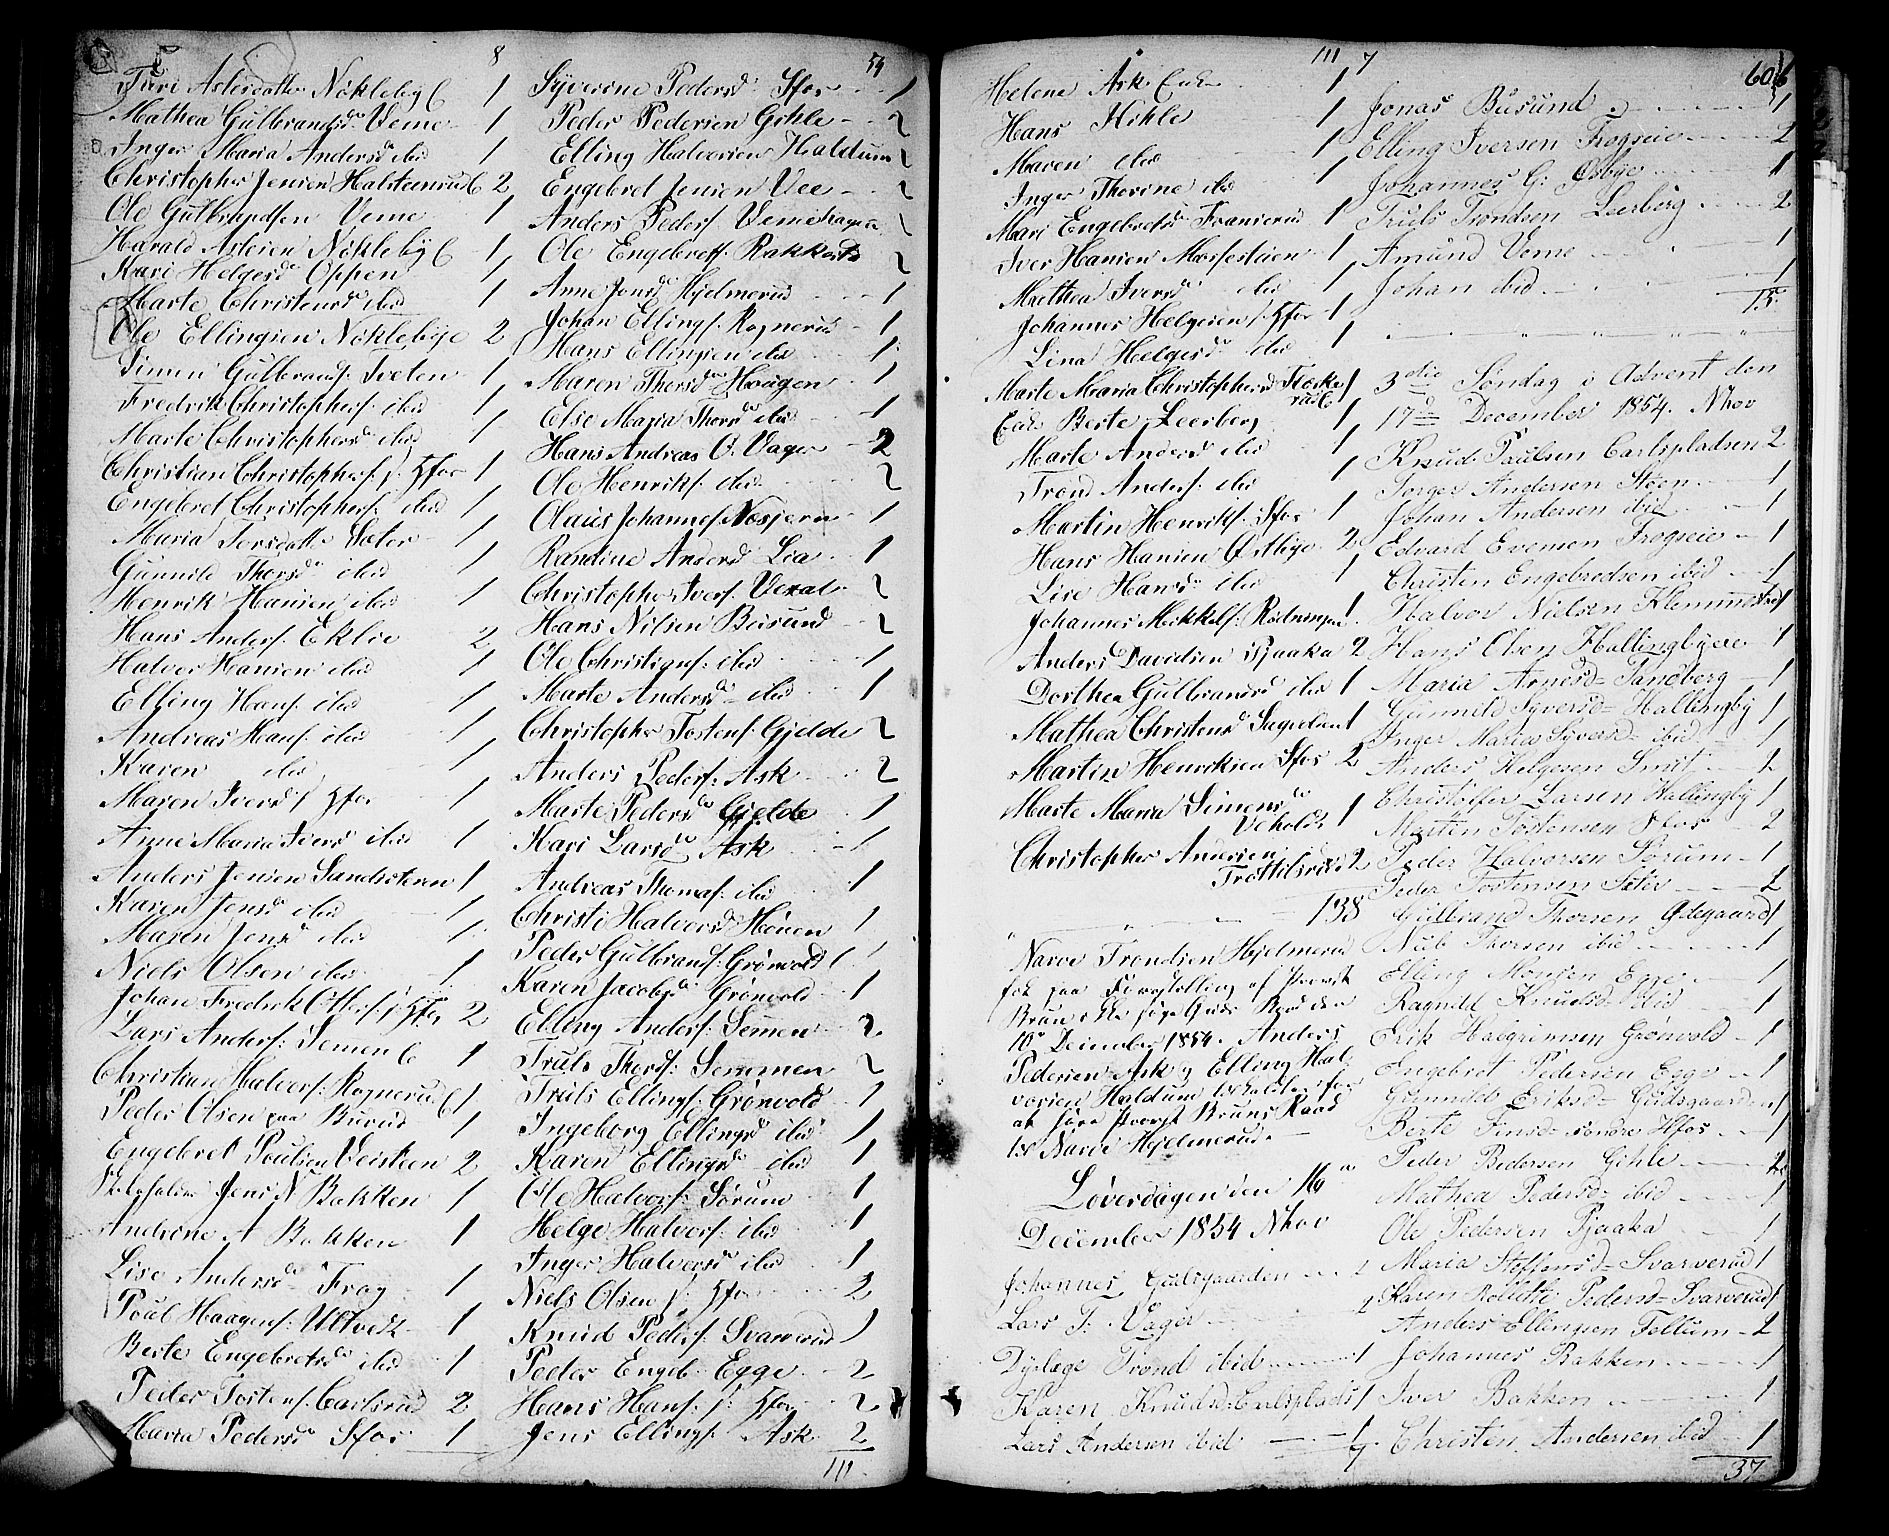 8
Turi Aslesdatter Nökleby E 1
Mathea Gulbrandsd. Veme 1
Inger Maria Andersd ibid 1
Christopher Jensen Halsteenrud E 2
Ole Gulbrandsen Veme 1
Harald Aslesen Nökleby E 1
Kari Helgesd Oppen 1
Marte Christensd ibid 1
Ole Ellingsen Nöklebye 2
Simen Gulbrands: Tveten 1
Fredrik Christophers: ibid 1
Marte Christophersd ibid 1
Christian Christophers: s: Hfos 1
Engebret Christophers: ibid 1
Maria Torsdatter Sæter 1
Gunnild Thorsd ibid 1
Henrik Hansen ibid 1
Hans Anders: Eklie 2
Halvor Hansen ibid 1
Elling Hans: ibid 1
Andreas Hans: ibid 1
Karen ibid 1
Maren Iversd s Hfos 1
Anne Maria Iversd ibid 1
Anders Jensen Sandsoteren 1
Karen Jensd ibid 1
Maren Jensd ibid 1
Niels Olsen ibid 1
Johan Fredrik Otters: s: Hfos 2
Lars Anders: Semen E 1
Christian Halvors: Rognerud E 1
Peder Olsen paa Burud E 1
Engebret Poulsen Veisteen 2
Jens N Bakken 1
Andrine A Bakken 1
Lise Andersd Frog 1
Poul Haagens: Ultvedt 1
Berte Engebretsd ibid 1
Peder Tostens: Carlsrud 2
Maria Pedersd Hfos 1
59
Syverine Pedersd Hfos 1
Peder Pedersen Gihle 2
Elling Halvorsen Haldum 2
Engebret Jensen Vee 2
Anders Peders: Vemehagen 1
Ole Engebrets: Rakkestad 2
Anne Jonsd Hjelmerud 1
Johan Ellings: Rognerud 1
Hans Ellingsen ibid 1
Maren Thorsd Haugen 1
Else Maria Thorsd ibid 1
Hans Andreas O. Vager 2
Ole Henriks: ibid 2
Olaus Johannes: Næsjern 1
Randine Andersd Lia 1
Christopher Ivers: Vexal 2
Hans Nilsen Busund 2
Ole Christians: ibid 1
Marte Andersd ibid 1
Christopher Tostens: Gjelde 2
Anders Peders: Ask 2
Marte Pedersd Gjelde 1
Kari Larsd Ask 1
Andreas Thomas: ibid 1
Christi Halvorsd Mouen 1
Peder Gulbrands: Grönvold 1
Karen Jacobsd Grönvold 1
Elling Anders: Semmen 2
Truls Thords: Semmen 2
Truls Ellings: Grönvold 1
Ingeborg Ellingsd ibid 1
Karen Ellingsd ibid 1
Ole Halvors: Sörum 1
Helge Halvors: ibid 1
Inger Halvorsd ibid 1
Niels Olsen s: Hfos 2
Knud Peders: Svarverud 1
Peder Engeb: Egge 2
Hans Hans: s: Hfos 2
Jens Ellings: Ask 2
111
111
Helene Ask Enke 1
Hans Kihle 1
Maren ibid 1
Inger Thorine ibid 1
Mari Engebretsd Franserud 1
Iver Hansen Mosfesteien 1
Mathea Iversd ibid 1
Johannes Helgesen s. Hfos 1
Lina Helgesd ibid 1
Marte Maria Christophersd Flaske
rud E 1
Enke Berte Leerberg 1
Marte Andersd ibid 1
Trond Anders: ibid 1
Martin Henriks: Hfos 1
Hans Hansen Østbye 2
Lise Hansd ibid 1
Johannes Mikkels: Rödningen 1
Anders Davidsen Pjaaka 2
Dorthea Gulbrandsd ibid 1
Mathea Christensd Sagedam 1
Martin Henriksen Hfos 2
Marte Maria Simensd
Veholdt 1
Christopher Andersen
Trottelsrud 2
138
Narve Trondsen Hjelmerud
fik paa Forestilling af Provst
Bruun ikke søge Guds Bord den
10de December 1854. Anders
Pedersen Ask og Elling Hal-
vorsen Haldum for
at høre Provst Bruuns Raad
til Narve Hjelmerud.
Løverdagen den 16de
December 1854 Nhov
Johannes Gulsgaarden 2
Lars T. Vager 2
Dyslæge Trond ibid 1
Karen Knudsd Carlsplads 1
Lars Andersen ibid 1
7
7
60
Jonas Busund 1
Elling Iversen Frogseie 2
Johannes G: Øsbye 1
Truls Trondsen Leerberg 2
Amund Veme 1
Johan ibid 1
15
3die Søndag i Advent den
17de December 1854. Nhov
Knud Paulsen Carlspladsen 2
Torger Andersen Støen 1
Johan Andersen ibid 1
Edvard Evensen Frogseie 1
Christen Engebredsen ibid 1
Halvor Nielsen Klemmestad 1
Hans Olsen Hallingbyeie 1
Maria Arnesd Tandberg 1
Gunnild Syversd Hallingby 1
Inger Maria Syversd ibid 1
Anders Helgesen Smit 2
Christoffer Larsen Hallingby 1
Morten Tostensen Hfos 2
Peder Halvorsen Sörum 1
Peder Tostensen Seter 2
Gulbrand Thorsen Ødegaard 1
Nub Thorsen ibid 1
Elling Monsen Egge 1
Ragnild Knudsd ibid 1
Erik Halgrimsen Grönvold 1
Engebret Pedersen Egge 1
Gunnild Eriksd Gulsgaarden 1
Berte Finsd søndre Hfos 1
Peder Pedersen Gihle 2
Mathea Pedersd ibid 1
Ole Pedersen Pjaaka 1
Maria Steffensd Svarverud 1
Karen Roliette Pedersd Svarverud 1
Anders Ellingsen Fellum 2
Johannes Bakken 1
Iver Bakken 1
Christin Andersen ibid 1
37